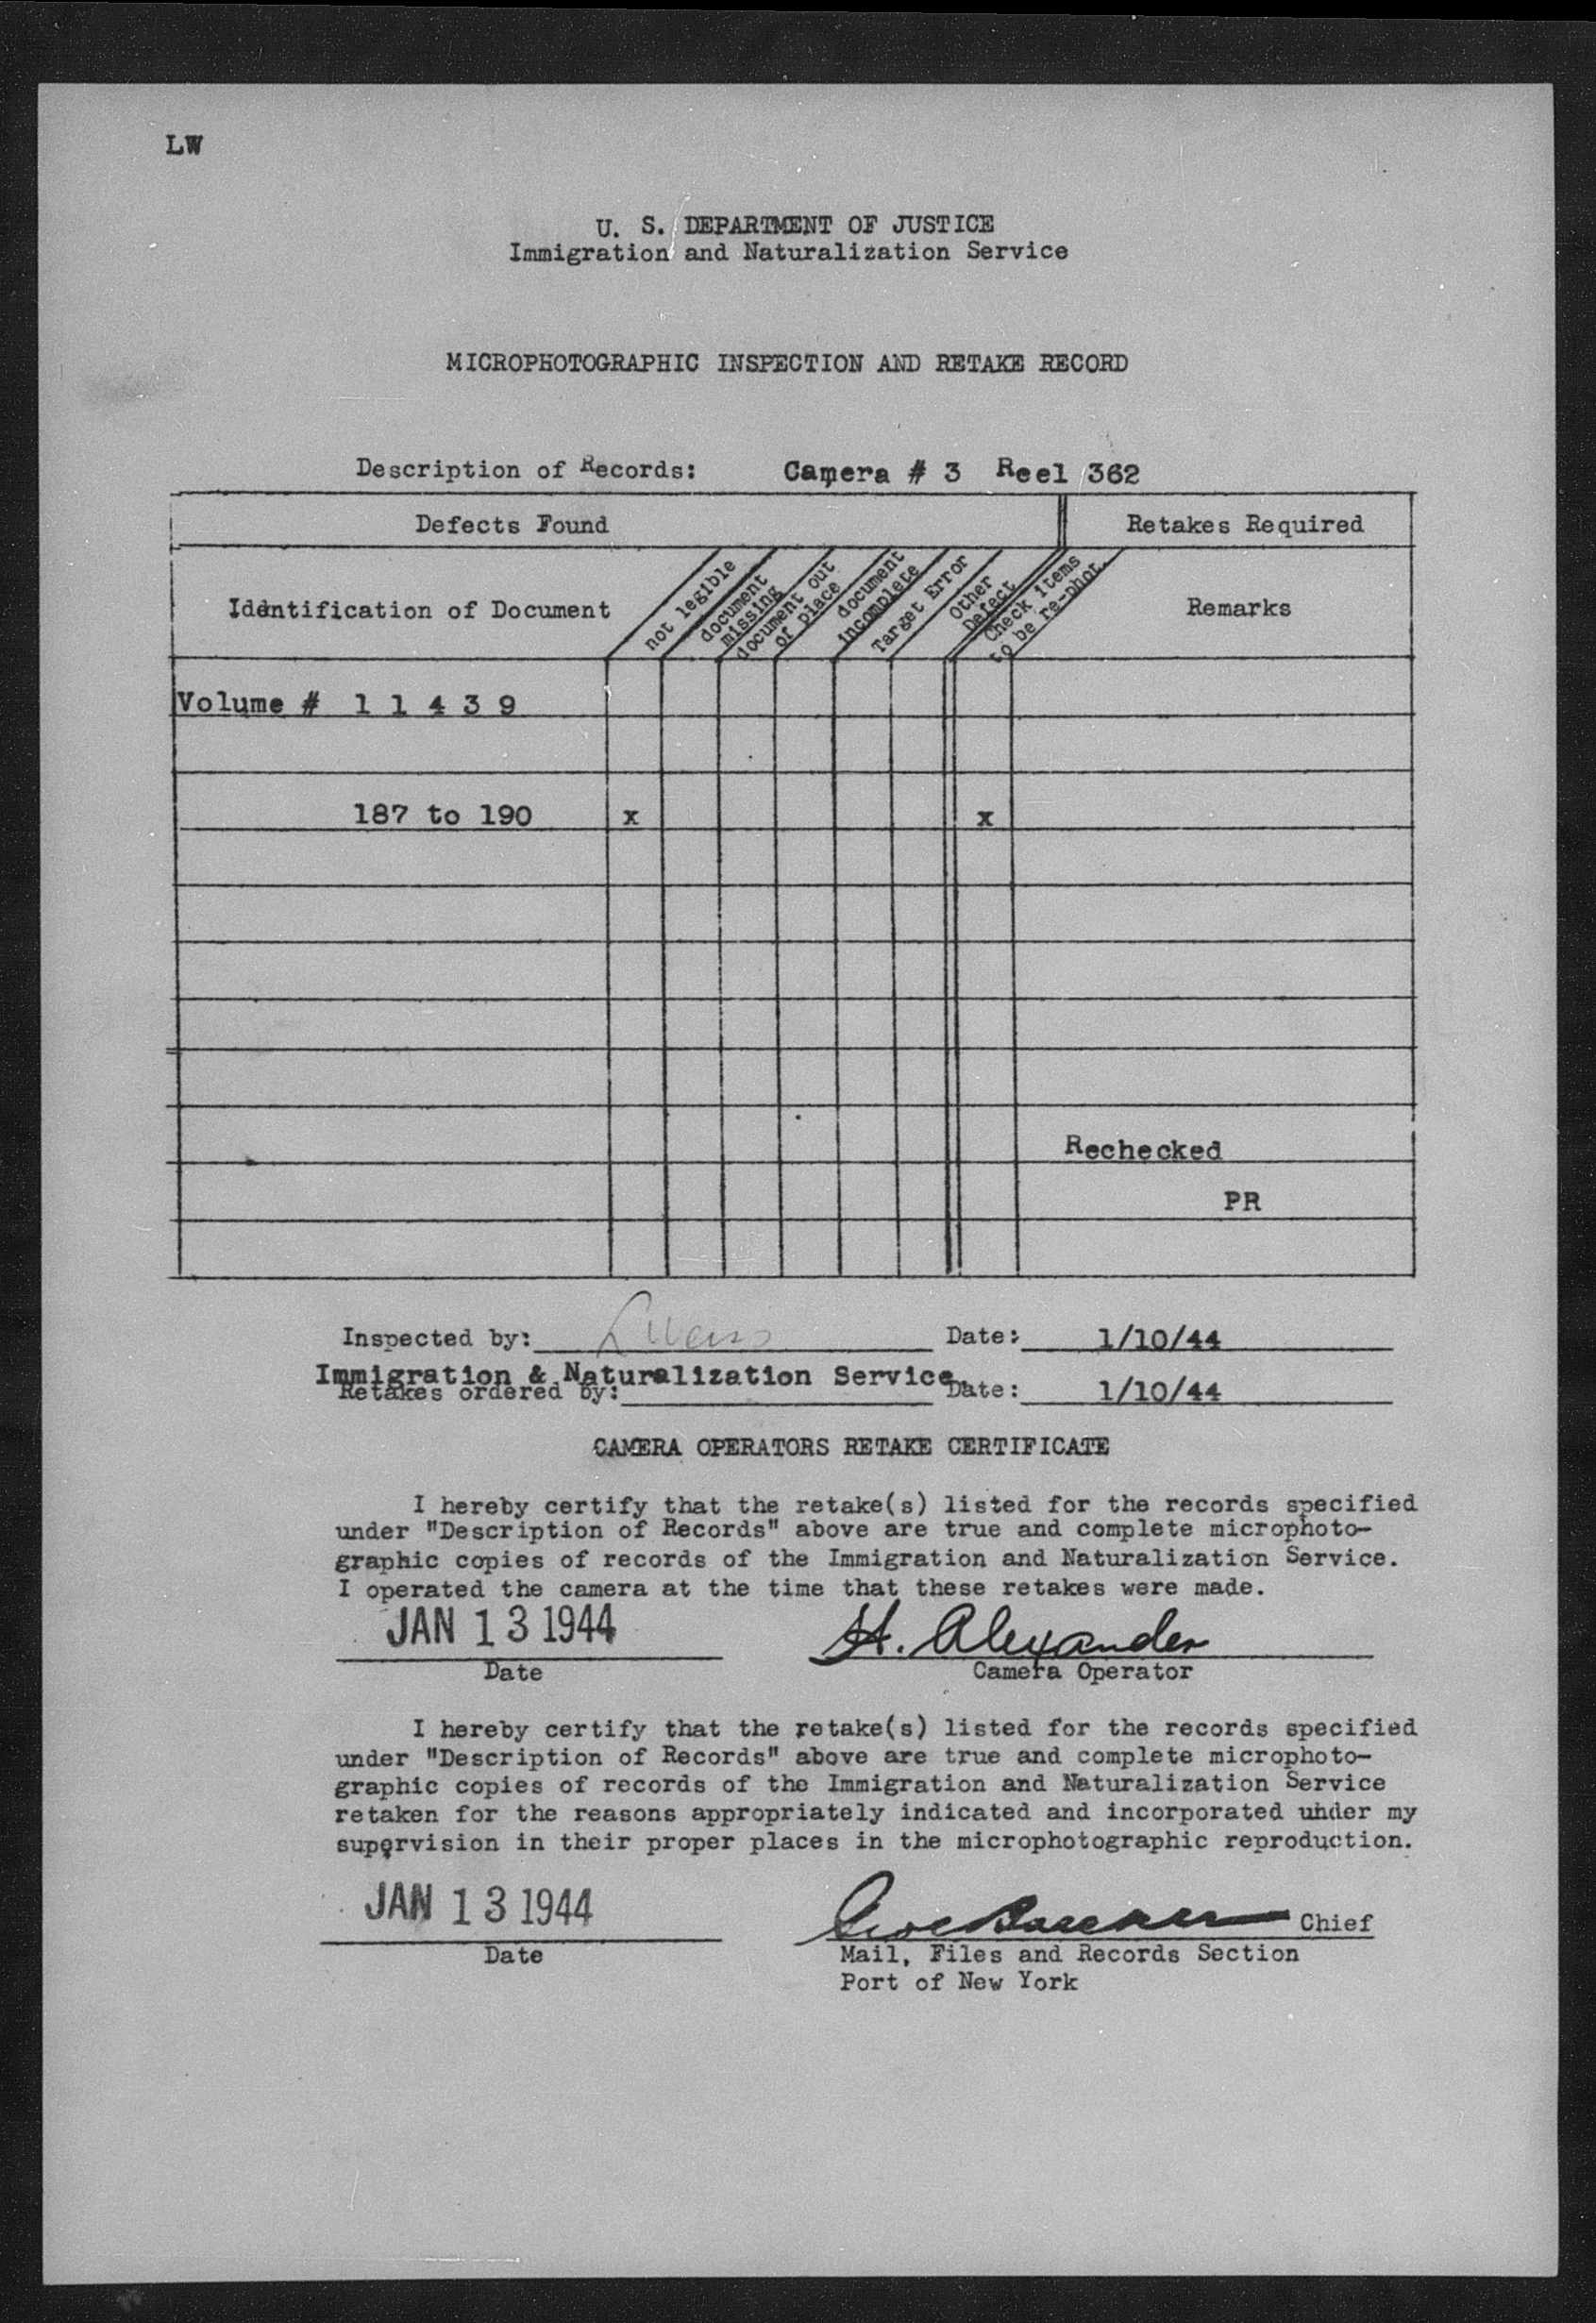 LW
U. S. DEPARTMENT OF JUSTICE
Immigration and Naturalization Service
MICROPHOTOGRAPHIC INSPECTION AND RETAKE RECORD
Description of Records: Camera # 3 Reel 362
Defects Found Retakes Required
Identification of Document
not legible
document
missing
document out
of place
document
incomplete
Target Error
Other
Defect
Check items
to be re-phot.
Remarks
Volume # 1 1 4 3 9
187 to 190 x x
Rechecked
PR
Inspected by: L Weiss Date: 1/10/44
Immigration & Naturalization Service
Retakes ordered by: Date: 1/10/44
CAMERA OPERATORS RETAKE CERTIFICATE
I hereby certify that the retake(s) listed for the records specified
under "Description of Records" above are true and complete microphoto-
graphic copies of records of the Immigration and Naturalization Service.
I operated the camera at the time that these retakes were made.
JAN 13 1944 H. Alexander
Date Camera Operator
I hereby certify that the retake(s) listed for the records specified
under "Description of Records" above are true and complete microphoto-
graphic copies of records of the Immigration and Naturalization Service
retaken for the reasons appropriately indicated and incorporated under my
supervision in their proper places in the microphotographic reproduction.
JAN 13 1944 Chief
Date Mail, Files and Records Section
Port of New York